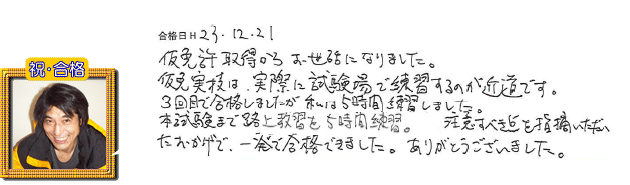 祝・合格
合格日H23.12.21
仮免許取得からお世話になりました。
仮免実技は、実際に試験場で練習するのが近道です。
3回目で合格しましたが私は5時間練習しました。
本試験まで路上教習を5時間練習。 注意すべき点を指摘いただい
たおかげで、一発で合格できました。ありがとうございました。